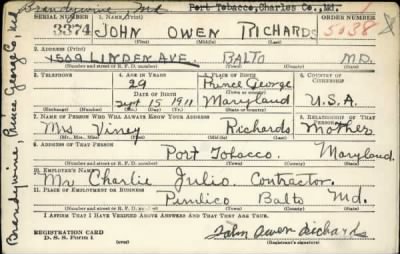 Brandywine, Md. Port Tobacco, Charles Co., Md.
SERIAL NUMBER 1. NAME (Print) ORDER NUMBER
3374 JOHN OWEN RICHARDS 5038
(First) (Middle) (Last)
2. ADDRESS (Print)
1509 LINDEN AVE. BALTO MD.
(Number and street or R. F. D. number) (Town) (County) (State)
3. TELEPHONE 4. AGE IN YEARS 5. PLACE OF BIRTH 6. COUNTRY OF CITIZENSHIP
29 Prince George
DATE OF BIRTH (Town or county)
Sept 15 1911 Maryland U.S.A.
(Exchange) (Number) (Mo.) (Day) (Yr.) (State or country)
7. NAME OF PERSON WHO WILL ALWAYS KNOW YOUR ADDRESS 8. RELATIONSHIP OF THAT PERSON
Mrs Viney Richards Mother
(Mr., Mrs., Miss) (First) (Middle) (Last)
9. ADDRESS OF THAT PERSON
Port Tobacco. Maryland.
(Number and street or R. F. D. number) (Town) (County) (State)
10. EMPLOYER'S NAME
Mr. Charlie Julio. Contractor.
11. PLACE OF EMPLOYMENT OR BUSINESS
Pimlico Balto Md.
(Number and street or R. F. D. number) (Town) (County) (State)
I AFFIRM THAT I HAVE VERIFIED ABOVE ANSWERS AND THAT THEY ARE TRUE.
REGISTRATION CARD
D. S. S. Form 1 (over) John Owen Richards
(Registrant's signature)
Brandywine, Prince George Co, Md